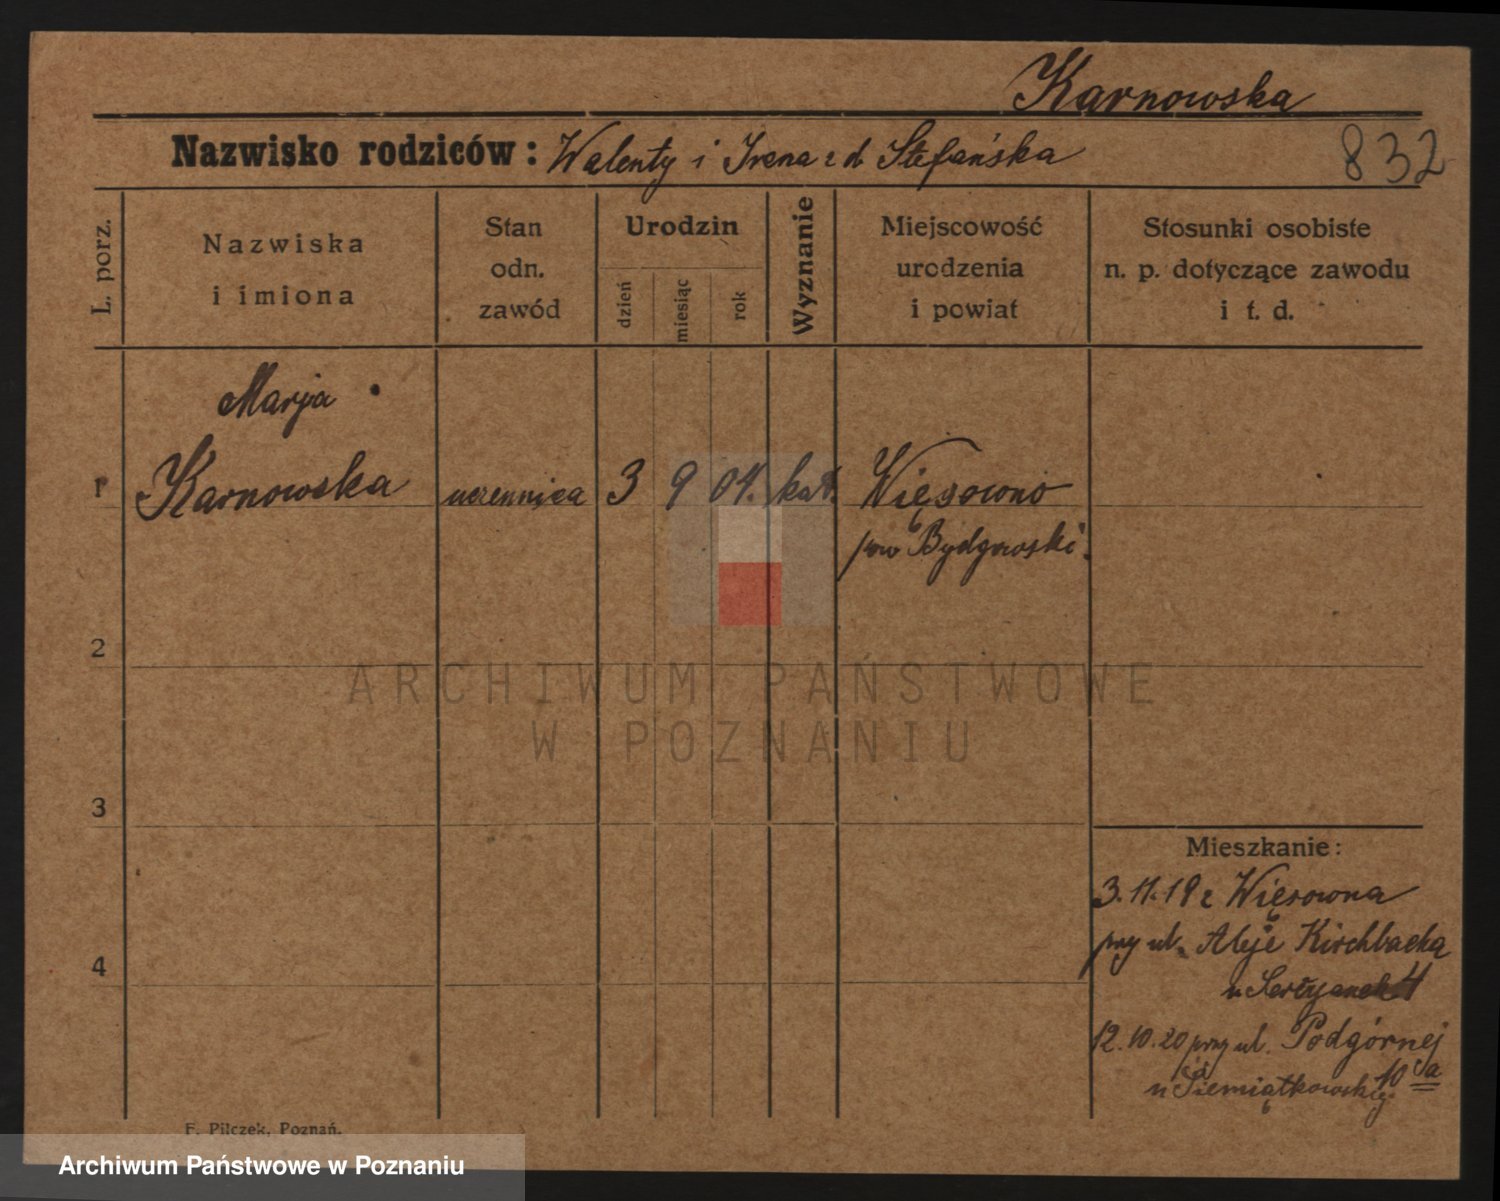 Karnowska
Nazwisko rodziców: Walenty i Irena z d Stefańska
832
L. porz.
Nazwiska
i imiona
Stan
odn.
zawód
Urodzin
dzień
miesiąc
rok
Wyznanie
Miejscowość
urodzenia
i powiat
Stosunki osobiste
n. p. dotyczące zawodu
i t. d.
Marja
1 Karnowska uczennica 3 9 04. kat. Więsowno
pow Bydgowski.
2
ARCHIWUM PAŃSTWOWE
W POZNANIU
3
Mieszkanie:
3.11.19 z Więsowna
przy ul. Aleje Kirchbacha
u 4
4
12.10.20 przy ul. Podgórnej
10a
u Siemiątkowskiej
F. Pilczek, Poznań.
Archiwum Państwowe w Poznaniu